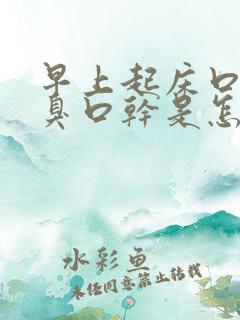 早上起床口
臭口幹是怎
水彩鱼
未经同意禁止转载